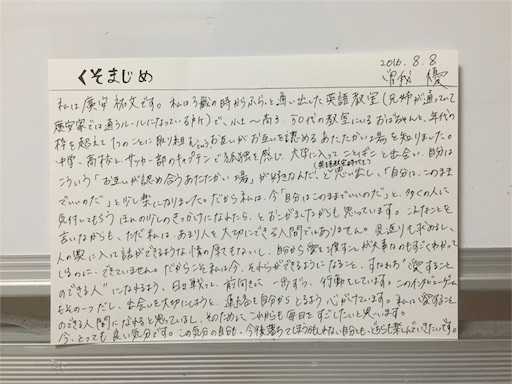 くそまじめ
2016.8.8
優
私は廣安祐文です。私は3歳の時からふらっと通い出した英語教室(兄姉が通っていて
廣安家では通うルールになっている中)で、小1〜高3、50代の教室にいるおばちゃんと、年代の
枠を超えて1つのことに取り組むお互いがお互いを認めるあたたかい場を知りました。
中学、高校と、サッカー部のキャプテンで孤独を感じ、大学に入ってことばこと出会い、自分は
(英語教室時代より)
こういう「お互いが認め合うあたたかい場」が好きなんだ、と思い出し、「自分は、このまま
でいいのだ」と少し楽になりました。だから私は、今「自分はこのままでいいのだ」と、多くの人に
気付いてもらうほんの少しのきっかけになれたら、とおこがましながらも思っています。こんなことを
言いながらも、ただ私は、あまり人を大切にできる人間ではありません。見返りも求めるし、
人の懐に入った話ができるような情の厚さもないし、自分から愛を渡すことが大事なのもすごくわかって
いるのに、できていません。だからこそ私は今、それらができるようになること、すなわち"愛すること
のできる人"になれるよう、日々戦い、前向きに一歩ずつ、行動しています。このインタビューゲーム
もその一つだし、出会いを大切にしようと、連絡も自分からとるよう心がけています。私は愛すること
のできる人間になれると思っているし、そのために、これからも毎日をすごしたいと思います。
今、とっても良い気分です。この気分の自分も、今後落ちてしまうかもしれない自分も、どちらも楽しんでいきたいです。